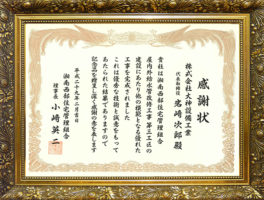 感謝状
株式会社大神設備工業
代表取締役 岩崎次郎殿
貴社は湘南西部住宅管理組合
屋内外給水管改修工事第三工区の
建設にあたり他の模範となる優れた
工事を完成されました
これは優秀な技術と誠意をもって
あたられた結果でありますので
記念品を贈呈し深く感謝の意を表します
平成二十九年二月吉日
湘南西部住宅管理組合
理事長 小崎英二